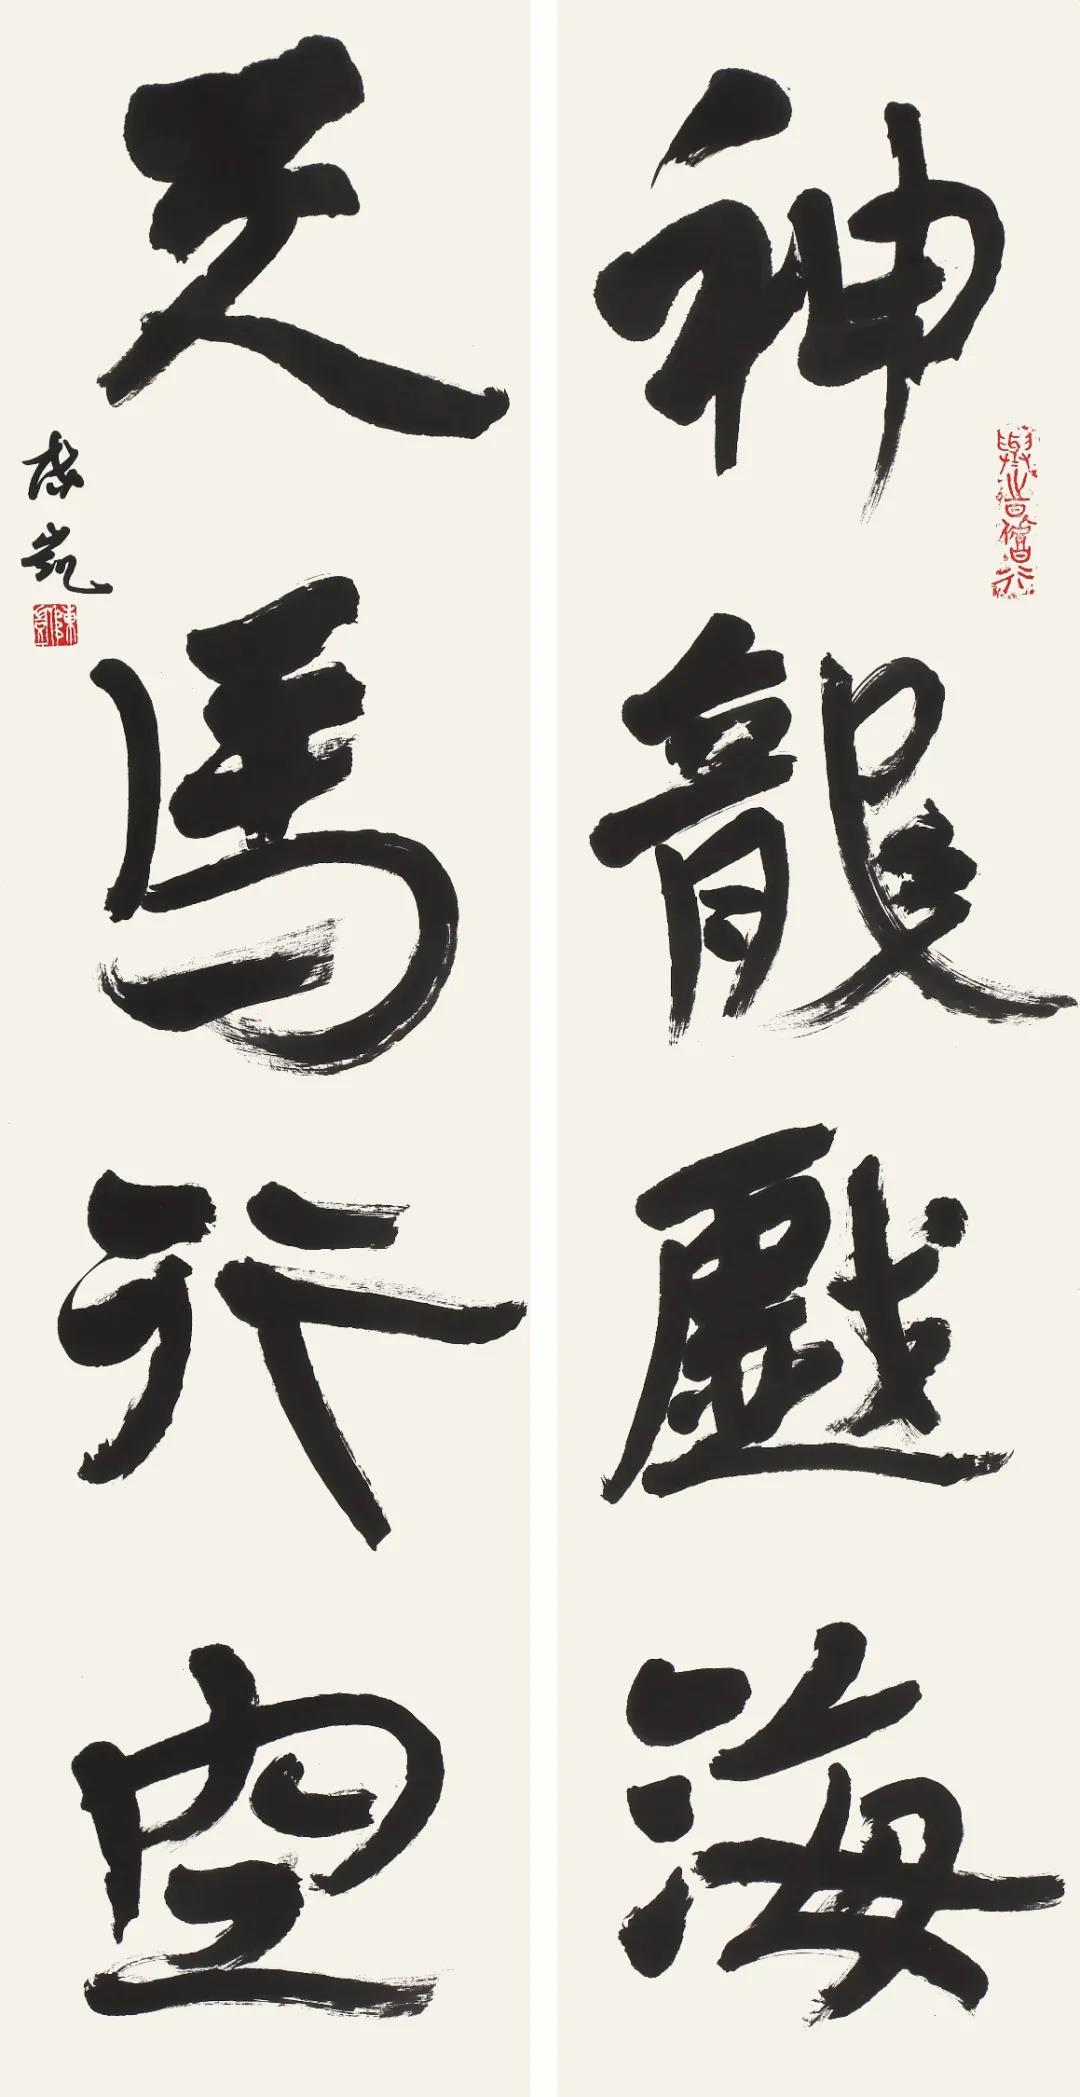 神龍戲海
天馬行空